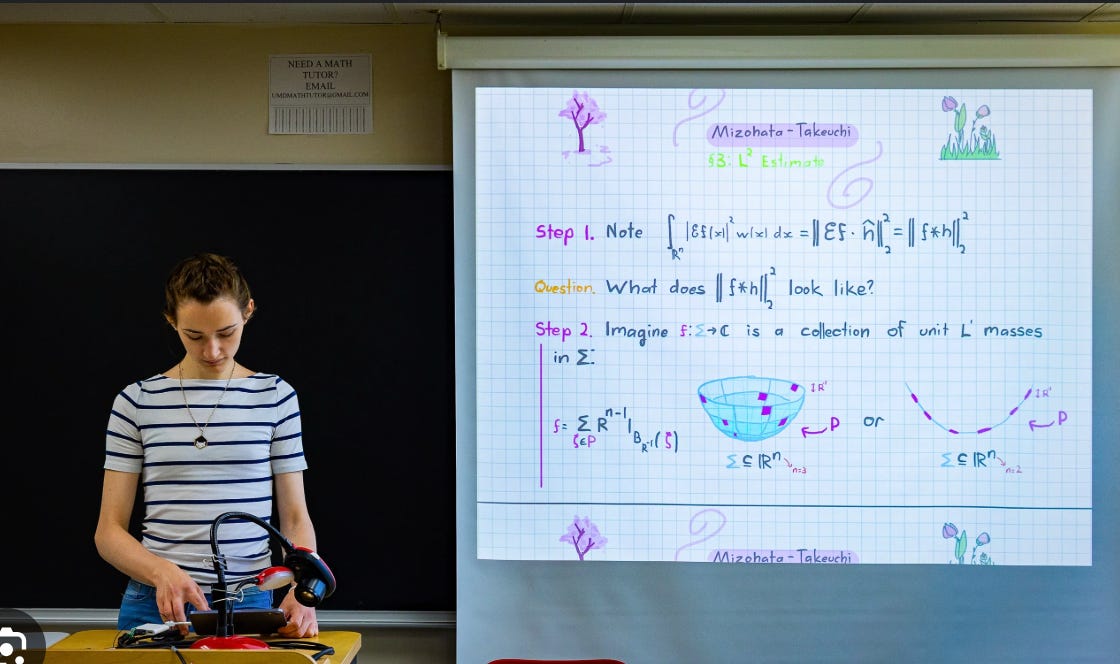 NEED A MATH
TUTOR?
EMAIL
UMDMATHTUTOR@GMAIL.COM
Mizohata - Takeuchi
§3: L² Estimate
Step 1. Note ∫_{ℝⁿ} |Ef(x)|² w(x) dx = ‖Ef · ĥ‖₂² = ‖f*h‖₂²
Question. What does ‖f*h‖₂² look like?
Step 2. Imagine f: Σ→ℂ is a collection of unit L¹ masses
in Σ:
f = Σ_{ζ∈P} R^{n-1} 1_{B_{R⁻¹}(ζ)}
↕R⁻¹
P
or
↕R⁻¹
P
Σ ⊆ ℝⁿ
n=3
Σ ⊆ ℝⁿ
n=2
Mizohata - Takeuchi